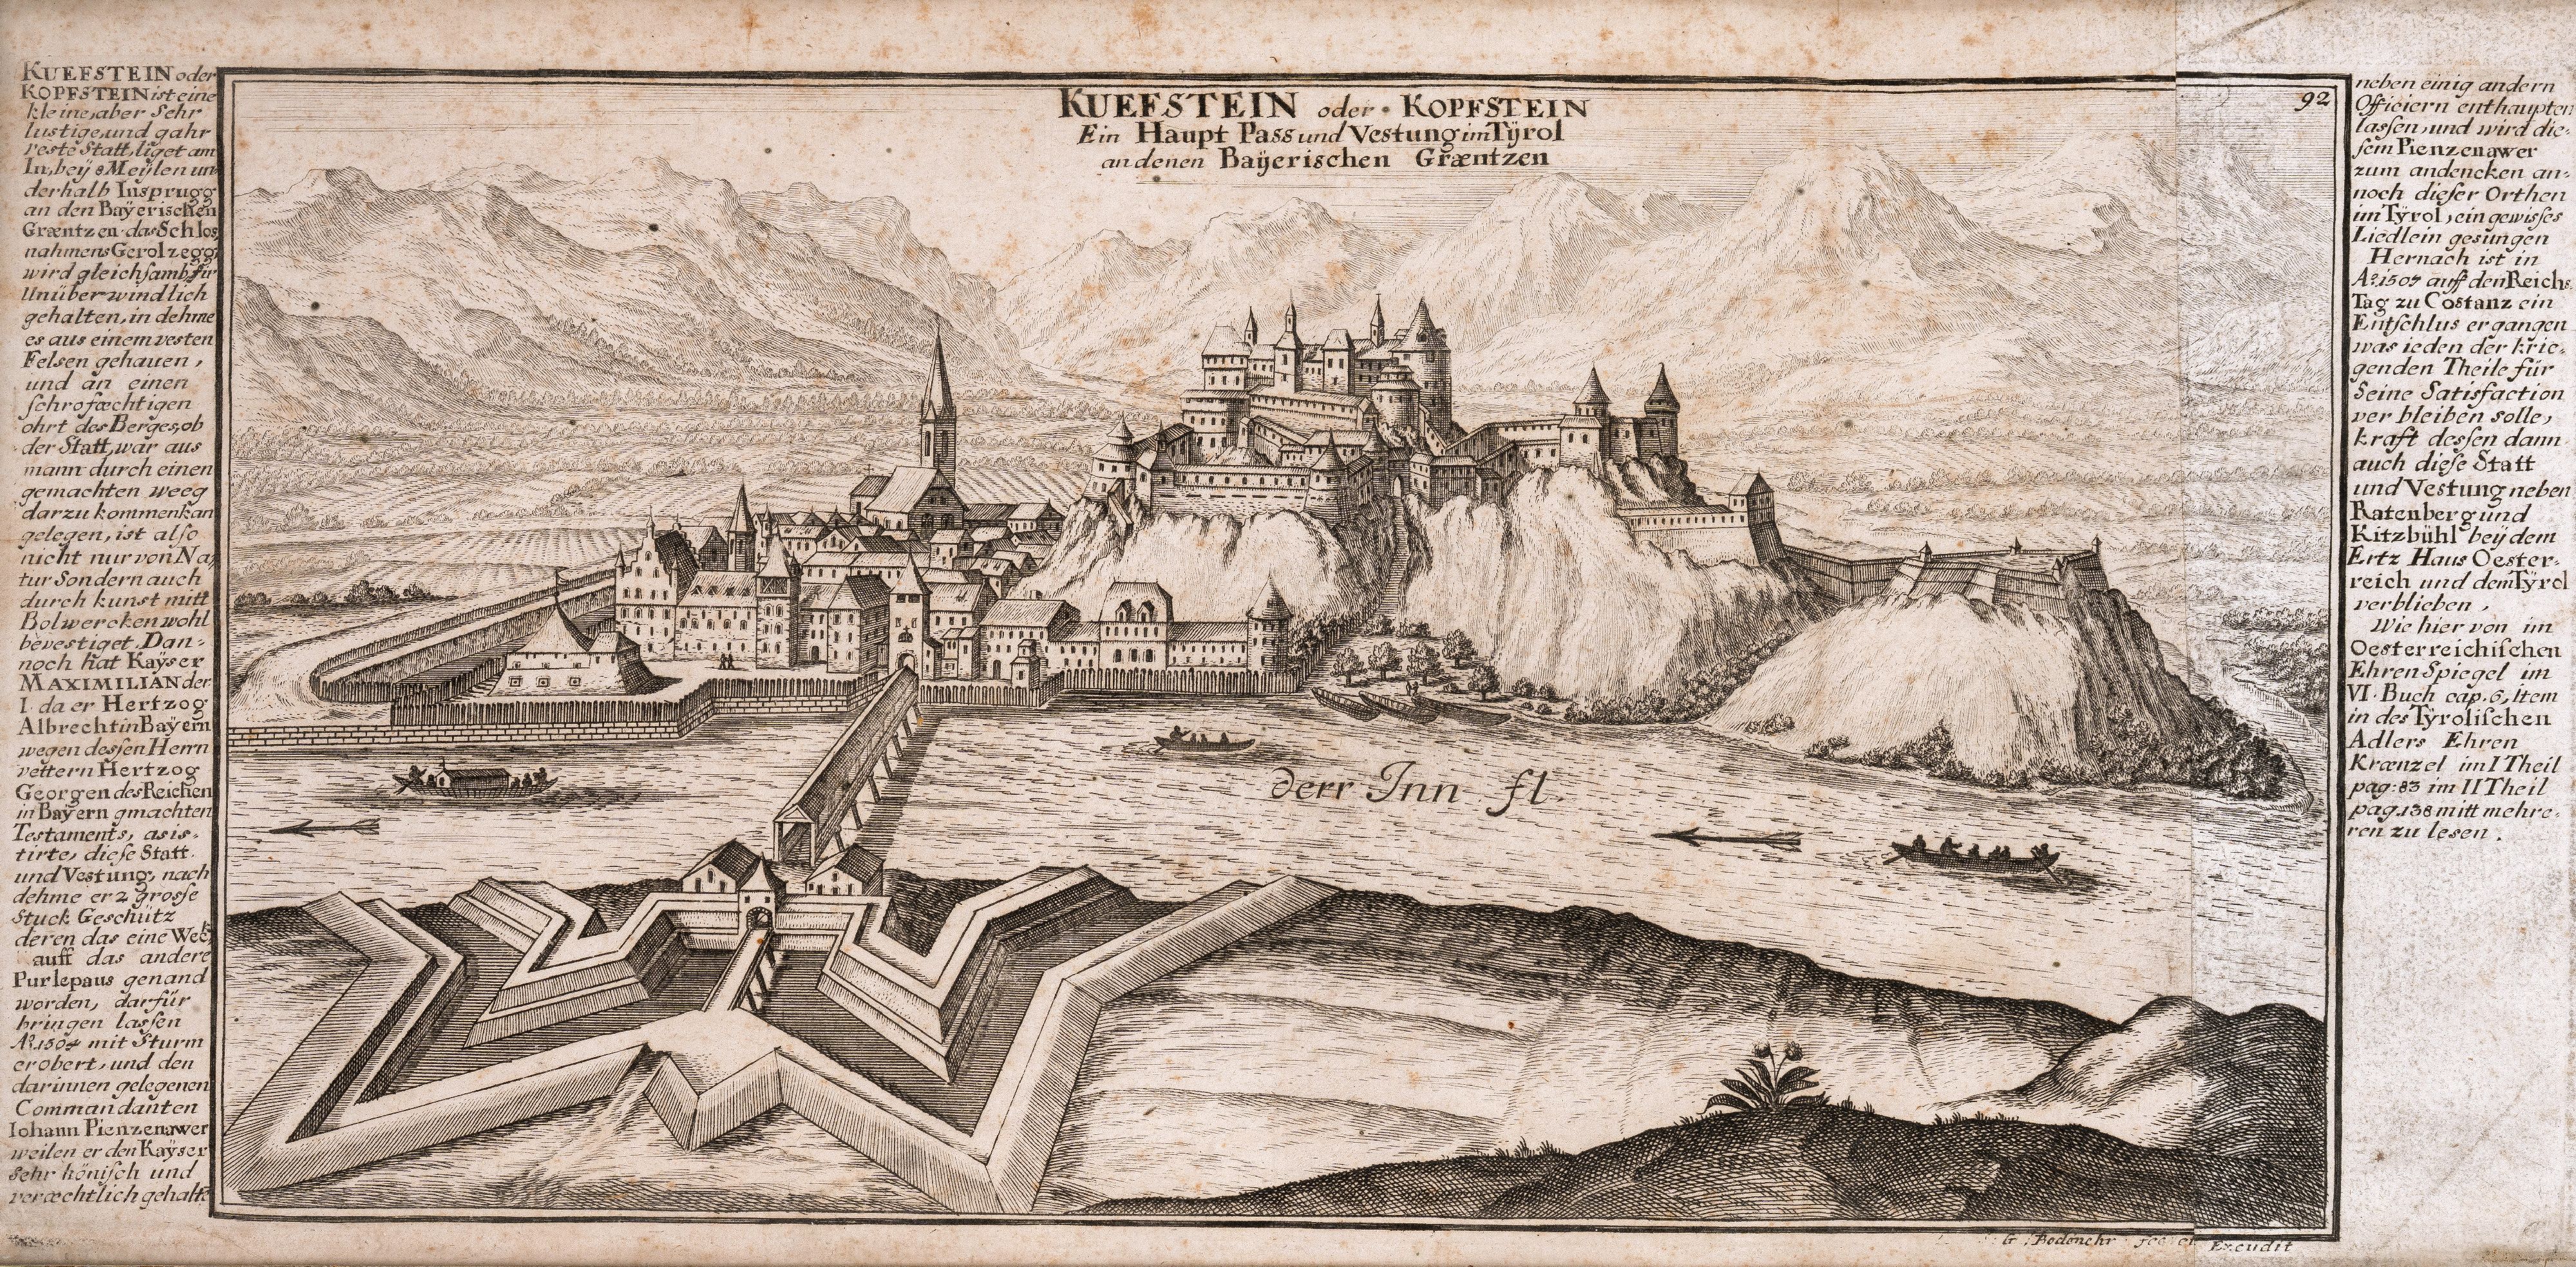 KUEFSTEIN oder
KOPFSTEIN ist eine
kleine, aber Sehr
lustige, und gahr
veste Statt, liget am
In, beÿ 8 Meÿlen un
derhalb Insprugg
an den Baÿerischen
Græntzen. das Schlos
nahmens Gerolzegg
wird gleichsamb für
Unüberwindlich
gehalten, in dehme
es aus einem vesten
Felsen gehauen,
und an einen
schrofæchtigen
ohrt des Berges, ob
der Statt, war aus
mann durch einen
gemachten weeg
darzu kommen kan
gelegen, ist also
nicht nur von Na,
tur Sondern auch
durch kunst mitt
Bolwercken wohl
bevestiget. Dan=
noch hat Kaÿser
MAXIMILIAN der
I. da er Hertzog
Albrecht in Baÿern
wegen dessen Herrn
vettern Hertzog
Georgen des Reichen
in Baÿern gmachten
Testaments, asis=
tirte, diese Statt
und Vestung, nach
dehme er 2 grosse
Stuck Geschütz
deren das eine Wek,
auff das andere
Purlepaus genand
worden, darfür
bringen lassen
Aº. 1504 mit Sturm
erobert, und den
darinnen gelegenen
Commandanten
Iohann Pienzenawer
weilen er den Kaÿser
Sehr hönisch und
veræchtlich gehalte
KUEFSTEIN oder KOPFSTEIN
Ein Haupt Pass und Vestung im Tÿrol
an denen Baÿerischen Græntzen
92
derr Inn fl.
neben einig andern
Officiern enthaupten
lassen, und wird die=
sem Pienzenawer
zum andencken an=
noch dieser Orthen
im Tÿrol, ein gewisses
Liedlein gesungen
Hernach ist in
Aº. 1507 auff den Reichs
Tag zu Costanz ein
Entschlus ergangen
was ieden der krie=
genden Theile für
Seine Satisfaction
verbleiben solle,
kraft dessen dann
auch diese Statt
und Vestung neben
Ratenberg und
Kitzbühl beÿ dem
Ertz Haus Oester=
reich und dem Tÿrol
verblieben,
Wie hier von im
Oesterreichischen
Ehren Spiegel im
VI. Buch cap. 6, Item
in des Tÿrolischen
Adlers Ehren
Krænzel im I Theil
pag: 83 im II Theil
pag. 138 mitt mehre=
ren zu lesen.
G. Bodenehr fec et Excudit